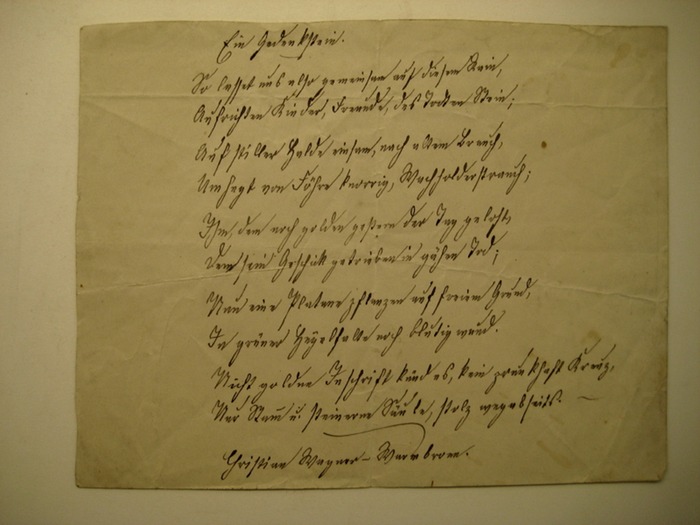 Ein Gedenkstein.
So lasset uns also gemeinsam auf diesem Rain,
Aufrichten Kinder, Freunde, des Todten Stein;
Auf stiller Halde einsam, nach altem Brauch,
Umhegt von Föhre knorrig, Wachholderstrauch;
Ihm, dem noch golden gestern der Tag geloht,
Dem sein Geschick getrieben in gähen Tod;
Nun eine Platane pflanzen auf freiem Grund,
In grüner Hügelfalte noch blutig wund.
Nicht goldne Inschrift künd es, kein prunkhaft Kreuz,
Nur Stam̄ u. steinerne Säule, stolz wegabseits.
Christian Wagner – Warmbronn.